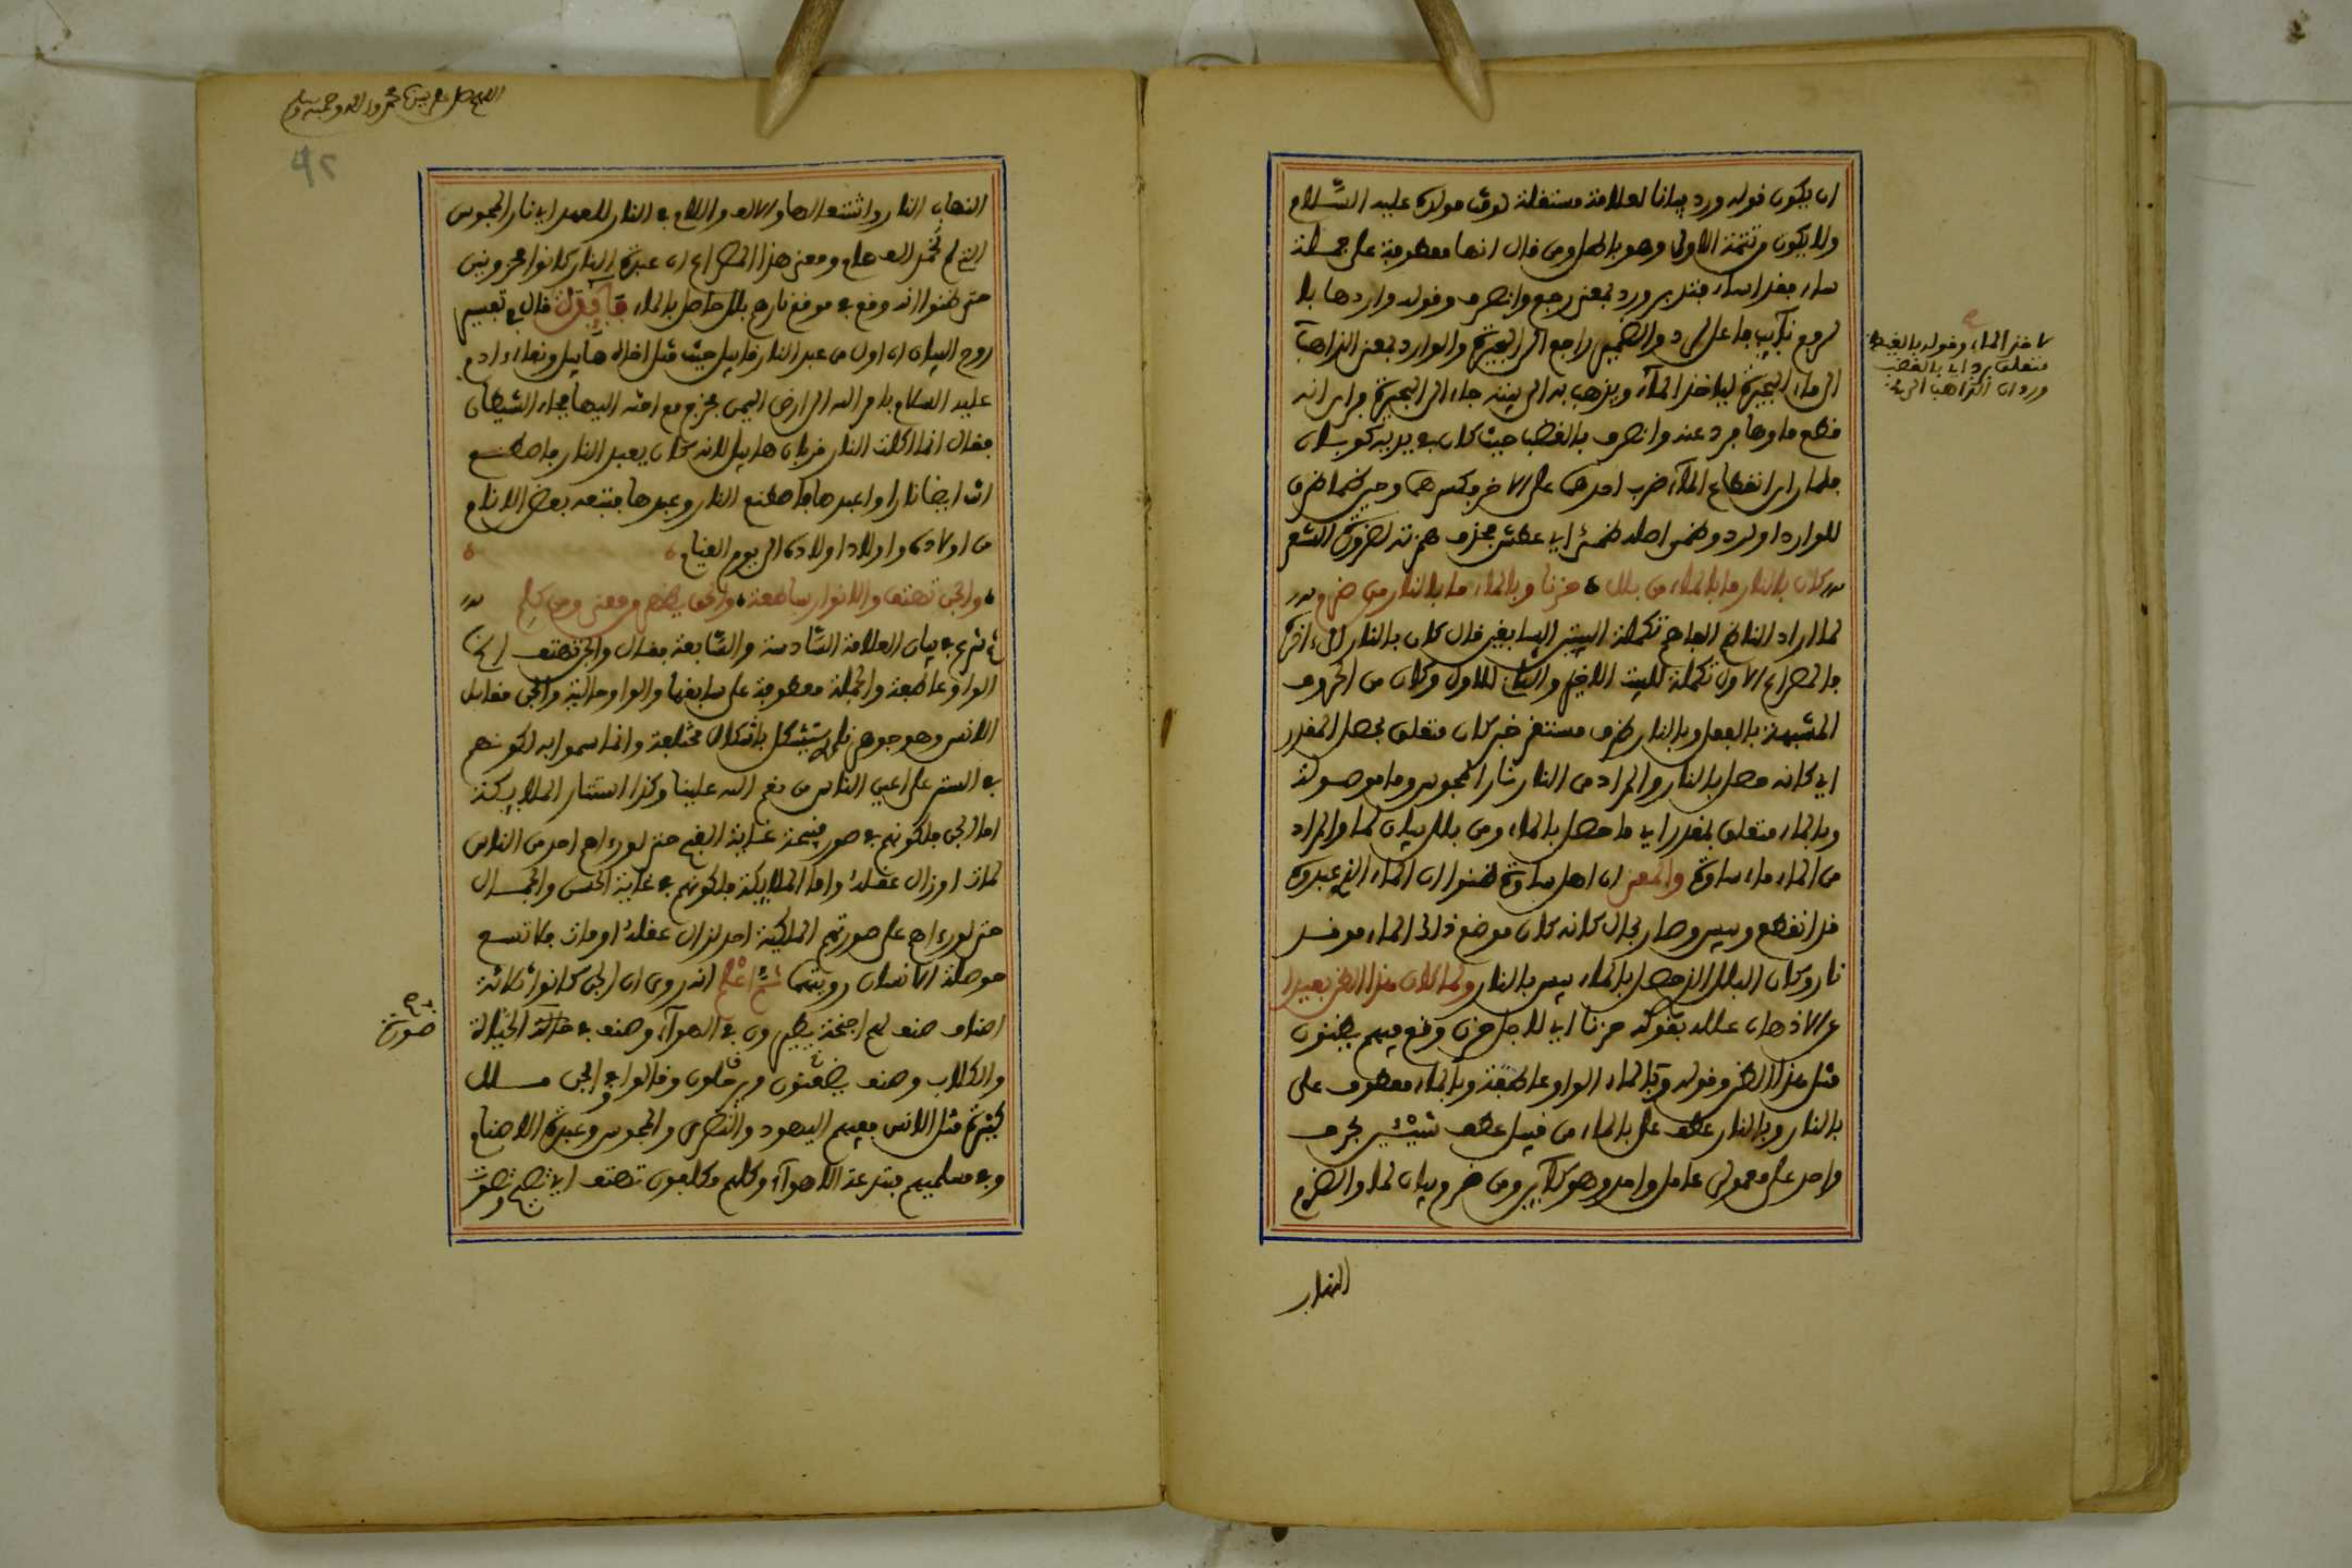 ان يكون قوله ورد بيانا لعلامة مستقلة لوقت مولده عليه السلام
ولا يكون من تتمة الاولى وهو باطل ومن قال انها معطوفة على جملة
ساء فقد اساء فتدبر ورد بمعنى رجع وانصرف وقوله واردها بال
لرفع نآيب فاعل لرد والضمير راجع الى البحيرة والوارد بمعنى الذاهب
الى ماء البحيرة لياخذ المآء ويذهب به الى بيته جاء الى البحيرة فراى انه
قطع ماوها فرد عنه وانصرف بالغضب حيث كان في يديه كوبان
فلما راى انقطاع المآء ضرب احدهما على الاخر فكسرهما وحين ظما ظرف
للوارد او لرد وظمى اصله ظمئ اي عطش فحذف همزته لضرورة الشعر
كان بالنار ما بالماء من بلل ه حزنا وبالماء ما بالنار من ضرم
لما اراد الناظم الفاهم تكملة البيتين السابقين قال كان بالنار الى اخره
فالمصراع الاول تكملة للبيت الاخير والثاني للاول وكان من الحروف
المشبهة بالفعل وبالنار ظرف مستقر خبر كان متعلق بحصل المقدر
اي كانه حصل بالنار والمراد من النار نار المجوس وما موصولة
وبالماء متعلق بمقدر اي ما حصل بالماء ومن بلل بيان لما والمراد
من الماء ماء ساوة والمعنى ان اهل ساوة ظنوا ان الماء الذي عبدوه
قد انقطع ويبس وصار بحال كانه كان موضع ذلك الماء موقد
نار وكان البلل الذي حصل بالماء يبس بالنار ولما كان هذا الظن بعيدا
عن الاذهان علله بقوله حزنا اي لاجل حزن وقع فيهم يظنون
مثل هذا الظن وقوله وبالماء الواو عاطفة وبالماء معطوف على
بالنار وبالنار عطف على بالماء من قبيل عطف شيئين بحرف
واحد على معمولى عامل واحد وهو كآين ومن ضرم بيان لما والضرم
التهاب
لاخذ الماء وقوله بالغيظ
متعلق برد اي بالغضب
ورد ان الذاهب الى
اللهم صل على نبينا محمد واله وصحبه وسلم
42
التهاب النار واشتعالها والالف واللام في النار للعهد اي نار المجوس
التي لم تخمد الف عام ومعنى هذا المصراع ان عبدة النار كانوا محزونين
حتى ظنوا انه وقع في موقع نارهم بلل حاصل بالماء فآئدة قال في تفسير
روح البيان ان اول من عبد النار قابيل حيث قتل اخاه هآبيل ونفاه ادم
عليه السلام بامر الله الى ارض اليمن فخرج مع اخته اليها فجاء الشيطان
فقال انما اكلت النار قربان هابيل لانه كان يعبد النار فاصطنع
انت ايضا نارا واعبدها فاصطنع النار وعبدها فتبعه بعض الانام
من اولاده واولاد اولاده الى يوم القيام ه
ه والجن تهتف والانوار ساطعة ه والحق يظهر من معنى ومن كلم
ثم شرع في بيان العلامة السادسة والسابعة فقال والجن تهتف الخ
الواو عاطفة والجملة معطوفة على سابقها والواو حالية والجن مقابل
الانس وهو جوهر ناري يتشكل باشكال مختلفة وانما سموا به لكونهم
في الستر على اعين الناس من نعم الله علينا وكذا استتار الملائكة
اما الجن فلكونهم في صور قبيحة غاية القبح حتى لو راهم احد من الناس
لمات او زال عقله واما الملائكة فلكونهم في غاية الحسن والجمال
حتى لو راهم على صورتهم الملكية احد لزال عقله او مات فلا تسع
حوصلة الانسان رويتها ثم اعلم انه روى ان الجن كانوا ثلاثة
اصناف صنف لهم اجنحة يطيرون في الهوآء وصنف في الحيات
صورة
والكلاب وصنف يضعنون ويرحلون وقالوا وفي الجن ملل
كثيرة مثل الانس ففيهم اليهود والنصرى والمجوس وعبدة الاصنام
وفي مسلميهم مبتدعة الاهوآء وكلهم مكلفون تهتف اي تصيح وتصوت